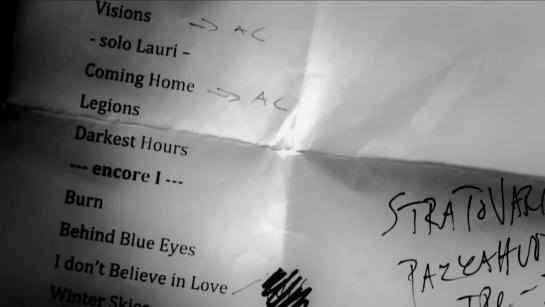 Visions → AC
- solo Lauri –
Coming Home → AC
Legions
Darkest Hours
--- encore I ---
Burn
Behind Blue Eyes
I don't Believe in Love
Winter Skies
STRATOVARI